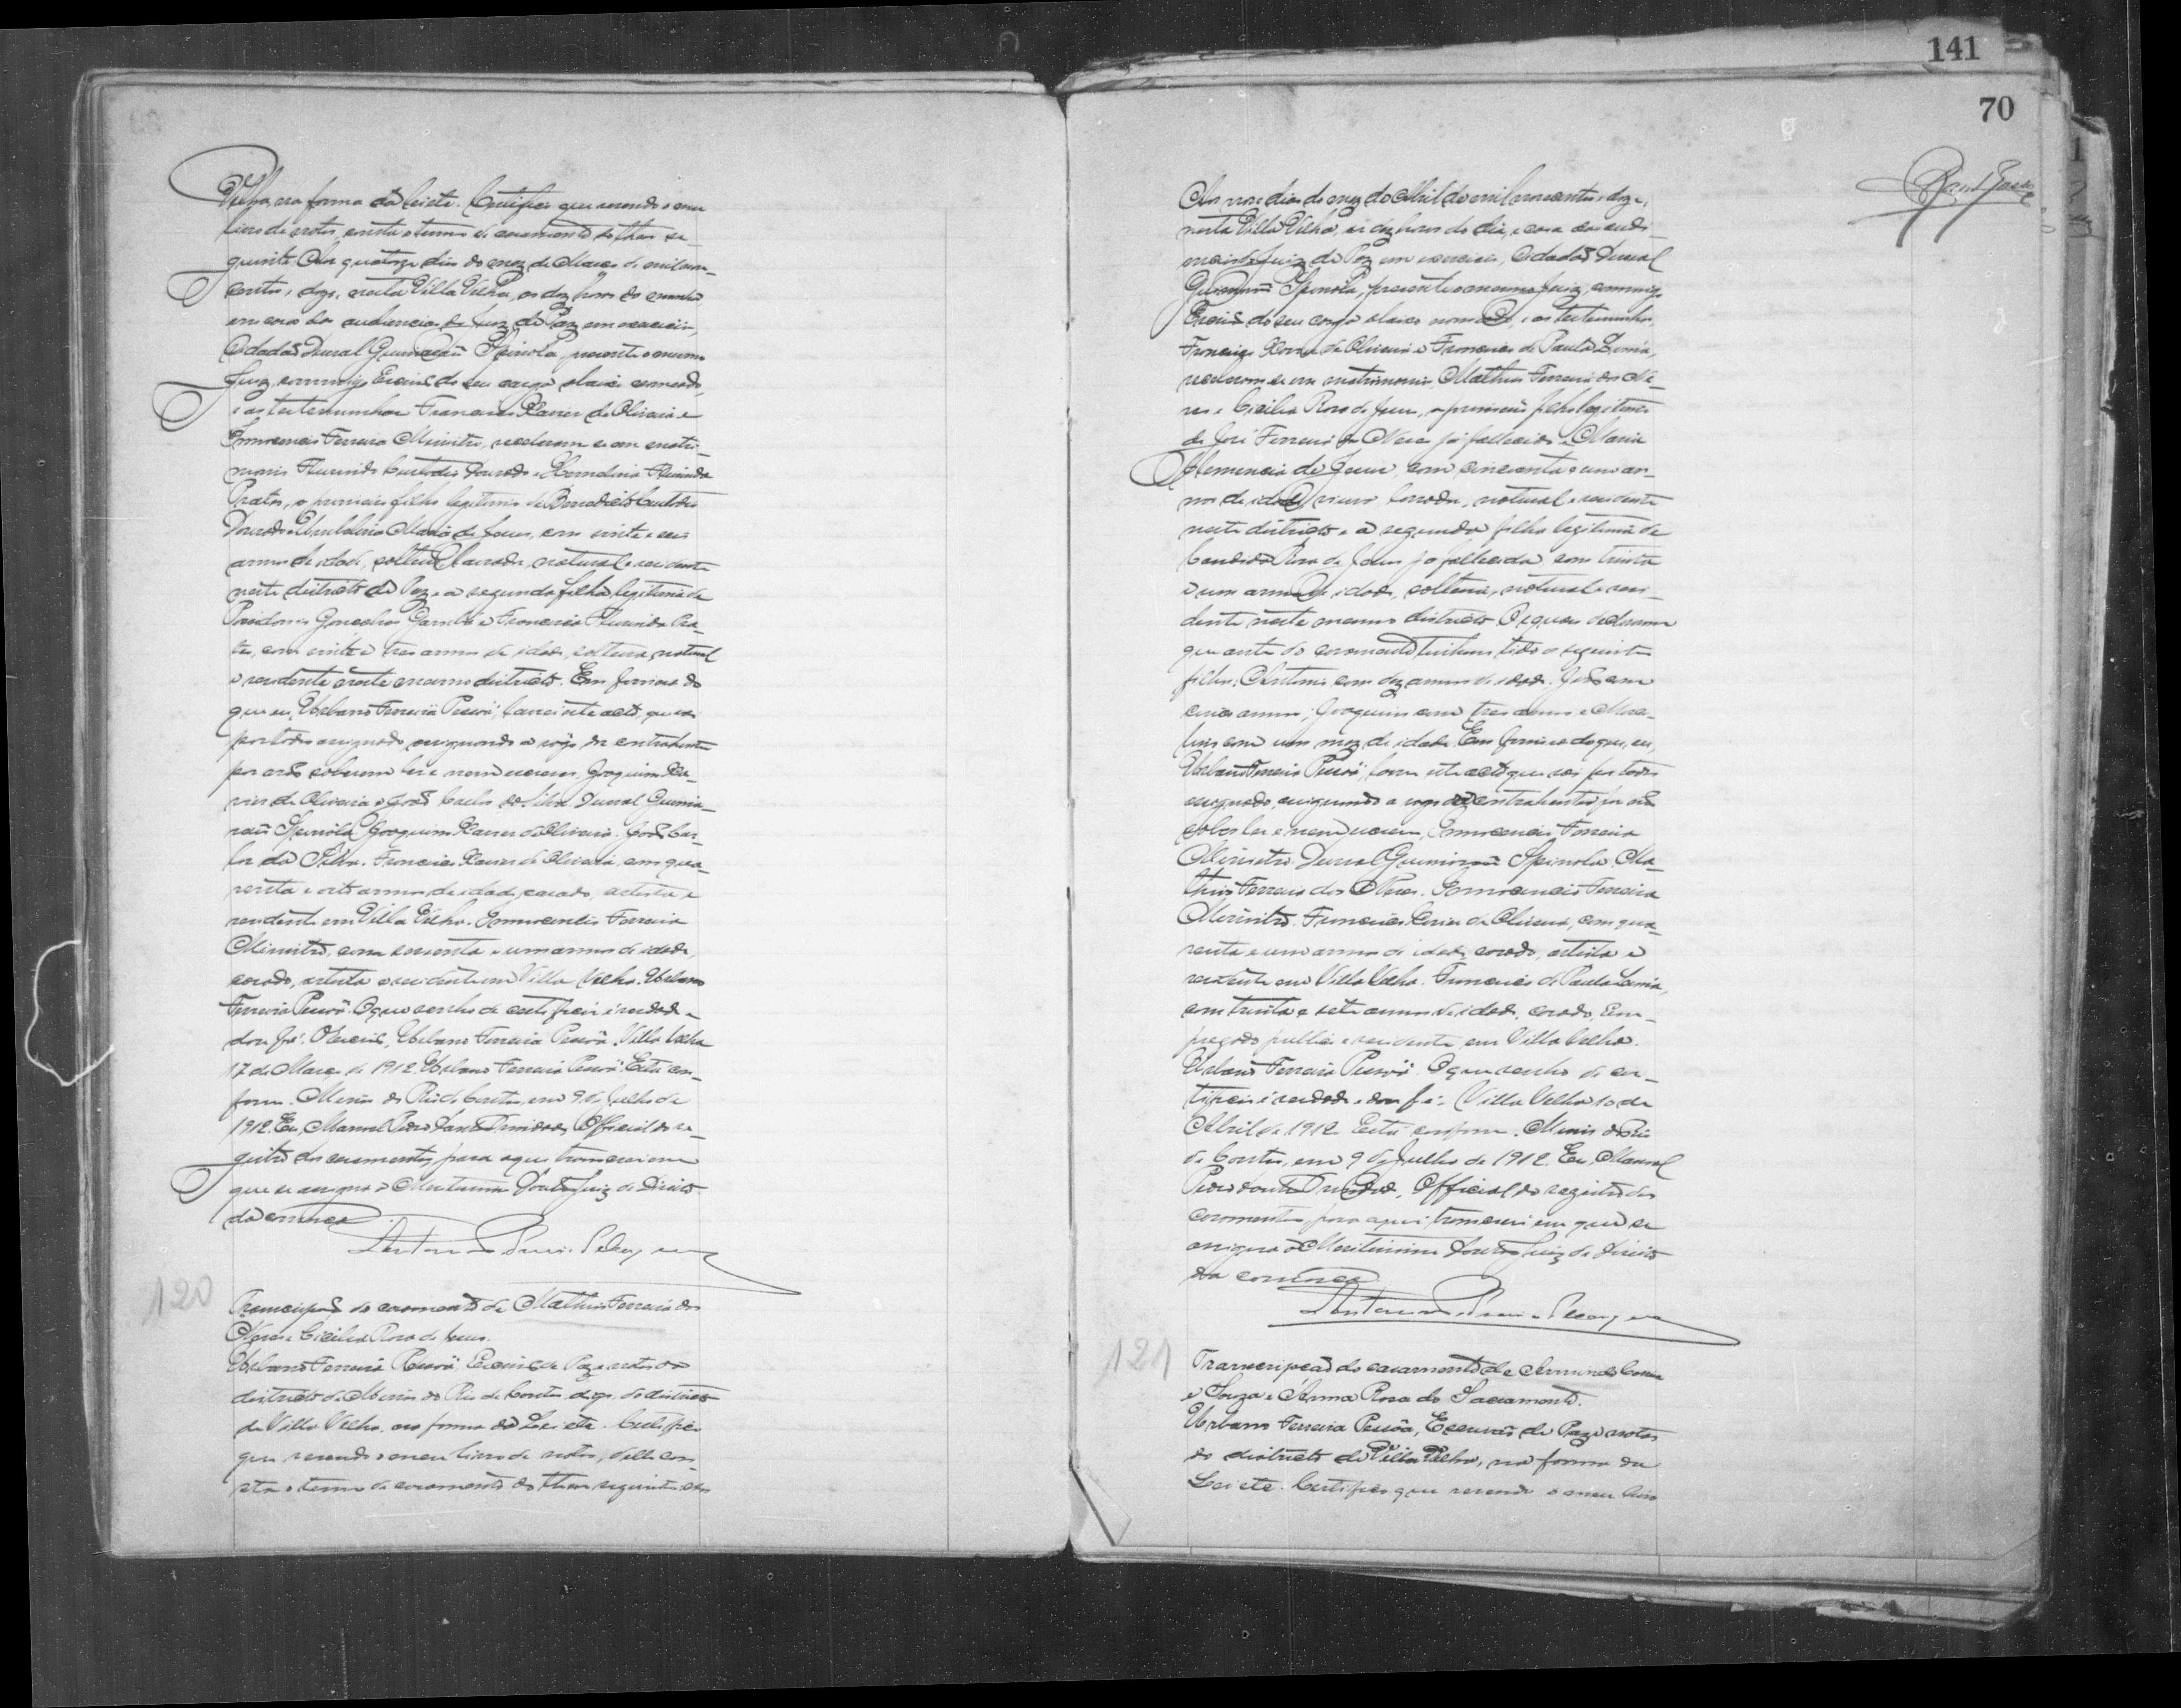 Velha, na forma da Lei etc. Certifico que revendo o meu
livro de notas, consta o termo de casamento do theor se-
guinte: Aos quatorze dias do mez de Março de mil nove-
centos e doze, nesta Villa Velha, as dez horas da manhã
em casa das audiencias do Juiz de Paz em exercicio,
Cidadão Durval Guimarães Spinola, presente o mesmo
Juiz, commigo Escrivão do seu cargo abaixo nomeado,
e as testemunhas Francisco Xavier de Oliveira e
Innocencio Ferreira Ministro, receberam-se em matri-
monio Florindo Custodio Dourado e Florinda
Prates, o primeiro filho legitimo de Benedicto Custodio
Dourado e Maria de Jesus, com vinte e seis
annos de idade, solteiro, lavrador, natural e residente
neste districto de Paz e a segunda filha legitima de
Gonçalves e Francisca Florinda Pra-
tes, com vinte e tres annos de idade, solteira, natural
e residente neste mesmo districto. Em firmeza do
que eu, Urbano Ferreira Pessôa, lavrei este acto, que vai
por todos assignado, assignando a rogo dos contrahentes
por não saberem ler e nem escrever, Joaquim Xa-
vier de Oliveira e João Carlos da Silva. Durval Guima-
rães Spinola. Joaquim Xavier de Oliveira. João Car-
los da Silva. Francisco Xavier de Oliveira, com qua-
renta e oito annos de idade, casado, artista e
residente em Villa Velha. Innocencio Ferreira
Ministro, com sessenta e um annos de idade,
casado, artista e residente em Villa Velha. Urbano
Ferreira Pessôa. O que venho de certificar é verdade e
dou fé. O Escrivão, Urbano Ferreira Pessôa. Villa Velha
17 de Março de 1912. Urbano Ferreira Pessôa. Está con-
forme. Minas do Rio de Contas, em 9 de Julho de
1912. Eu, Manoel Pedro dos Santos Trindade, Official do re-
gistro dos casamentos, para aqui transcrevi em
que se assigna o Meritissimo Doutor Juiz de Direito
da comarca.
120
Transcripção do casamento de Matheus Ferreira dos
Neres e Cicilia Rosa de Jesus.
Urbano Ferreira Pessôa, Escrivão de Paz e notas do
districto de Minas do Rio de Contas, digo, do districto
de Villa Velha, na forma da Lei etc. Certifico
que revendo o meu livro de notas, delle con-
sta o termo de casamento do theor seguinte: Aos
141
70
Aos nove dias do mez de Abril de mil novecentos e doze,
nesta Villa Velha, as dez horas do dia, e casa das audi-
encias do Juiz de Paz em exercicio, Cidadão Durval
Guimarães Spinola, presente o mesmo Juiz, commigo
Escrivão do seu cargo abaixo nomeado, e as testemunhas,
Francisco Xavier de Oliveira e Francisco de Paula
receberam-se em matrimonio, Matheus Ferreira dos Ne-
res e Cicilia Rosa de Jesus, o primeiro filho legitimo
de José Ferreira dos Neres já fallecido e Maria
Clemencia de Jesus, com cincoenta e um an-
nos de idade, viuvo, lavrador, natural e residente
neste districto e a segunda filha legitima de
Candida Rosa de Jesus já fallecida com trinta
e um annos de idade, solteira, natural e resi-
dente neste mesmo districto. Os quaes declararam
que antes do casamento tinham tido os seguintes
filhos: Antonio com dez annos de idade. João com
cinco annos; Joaquim com tres annos e
com um mez de idade. Em firmeza do que, eu,
Urbano Ferreira Pessôa, lavrei este acto que vai por todos
assignado, assignando a rogo da contrahente por não
saber ler e nem escrever, Innocencio Ferreira
Ministro. Durval Guimarães Spinola. Ma-
theus Ferreira dos Neres. Innocencio Ferreira
Ministro. Francisco Xavier de Oliveira, com qua-
renta e um annos de idade, casado, artista e
residente em Villa Velha. Francisco de Paula
com trinta e sete annos de idade, casado, Em-
pregado publico e residente em Villa Velha.
Urbano Ferreira Pessôa. O que venho de cer-
tificar é verdade e dou fé. Villa Velha 10 de
Abril de 1912. Está conforme. Minas do Rio
de Contas, em 9 de Julho de 1912. Eu, Manoel
Pedro dos Santos Trindade, Official do registro dos
casamentos para aqui transcrevi em que se
assigna o Meritissimo Doutor Juiz de Direito
da comarca.
121
Transcripção do casamento de Arminio
e Souza e Anna Rosa do Sacramento.
Urbano Ferreira Pessôa, Escrivão de Paz e notas
do districto de Villa Velha, na forma da
Lei etc. Certifico que revendo o meu livro